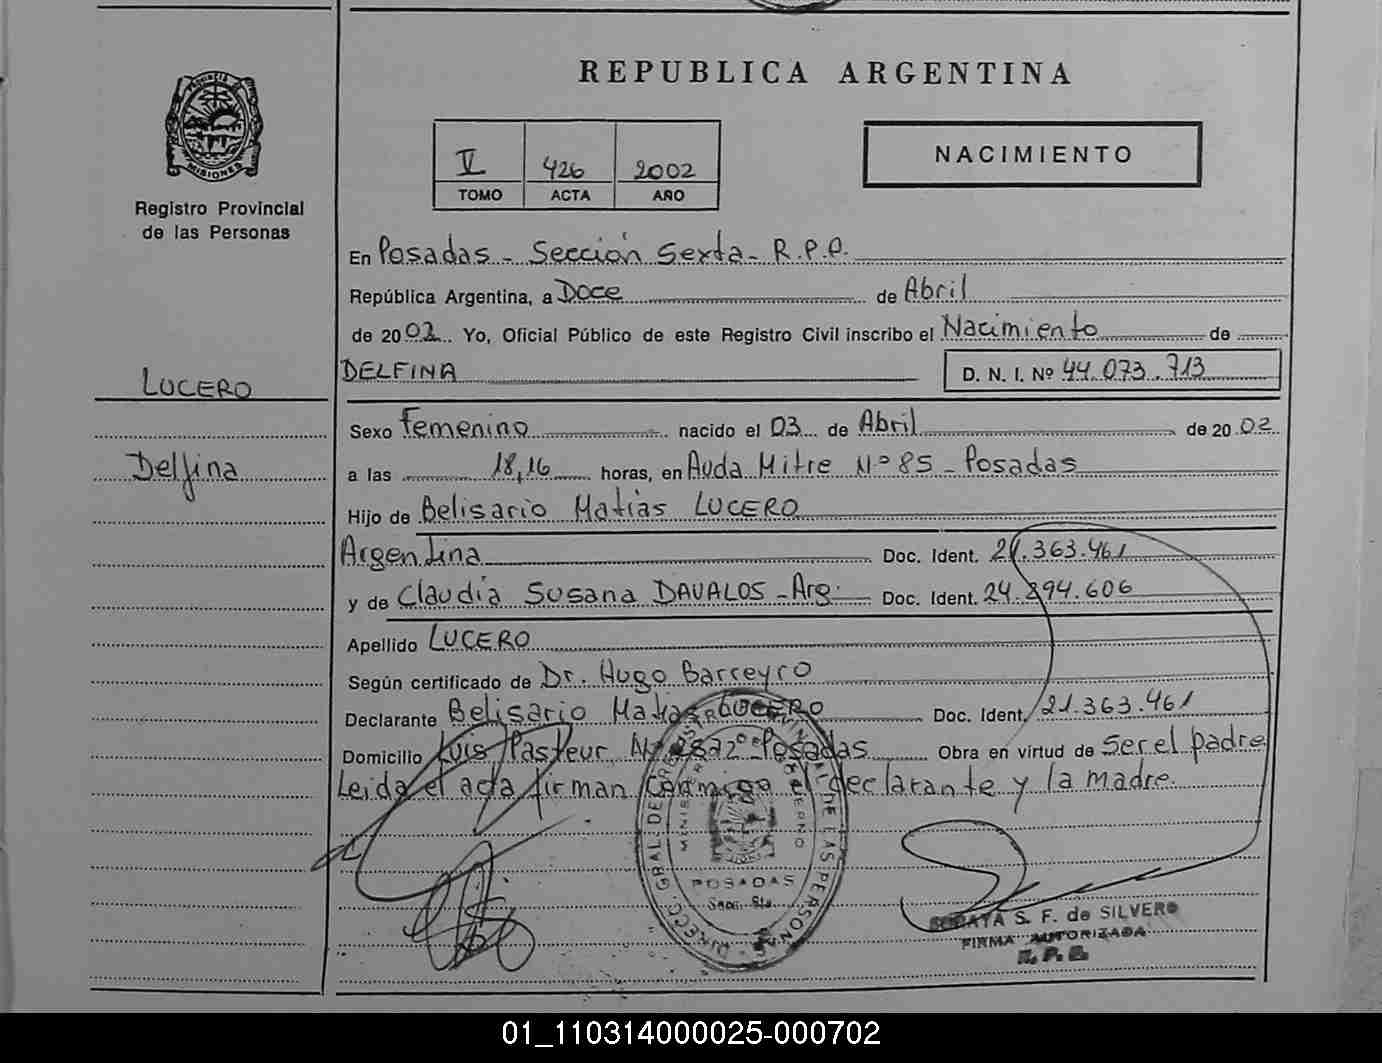 REPUBLICA ARGENTINA
PROVINCIA DE
MISIONES
Registro Provincial
de las Personas
V 426 2002
TOMO ACTA AÑO
NACIMIENTO
En Posadas - Sección Sexta - R.P.P.
República Argentina, a Doce de Abril
de 2002 Yo, Oficial Público de este Registro Civil inscribo el Nacimiento de
DELFINA D. N. I. Nº 44.073.713
LUCERO
Delfina
Sexo Femenino nacido el 03 de Abril de 2002
a las 18,16 horas, en Avda Mitre Nº 85 - Posadas
Hijo de Belisario Matías LUCERO
Argentina Doc. Ident. 21.363.461
y de Claudia Susana DAVALOS - Arg. Doc. Ident. 24.294.606
Apellido LUCERO
Según certificado de Dr. Hugo Barreyro
Declarante Belisario Matias LUCERO Doc. Ident. 21.363.461
Domicilio Luis Pasteur Posadas Obra en virtud de Ser el padre
Leida el acta firman Conmigo el declarante y la madre.
DIRECC. GRAL. DE REGISTRO PROVINCIAL DE LAS PERSONAS
MINISTERIO DE GOBIERNO
POSADAS
Secc. 6ta
SORAYA S. F. de SILVERO
FIRMA AUTORIZADA
R. P. P.
01_110314000025-000702